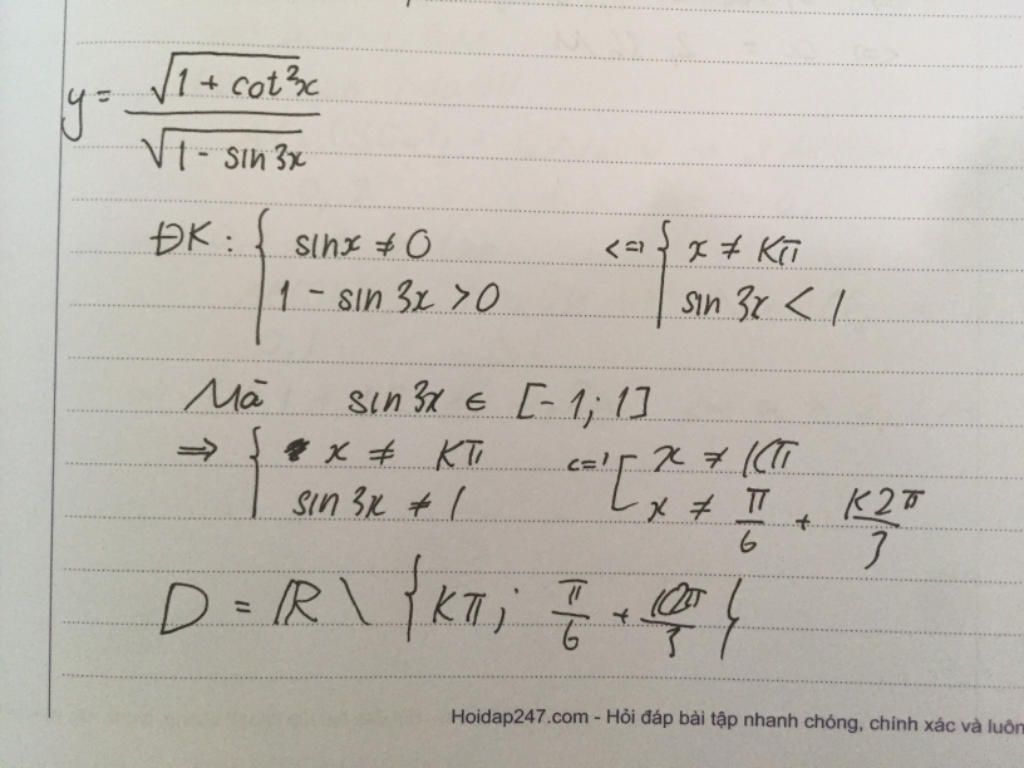 y = √(1 + cot²x) / √(1 - sin 3x)
ĐK : { sinx ≠ 0 <=> { x ≠ Kπ
1 - sin 3x > 0 sin 3x < 1
Mà sin 3x ∈ [-1; 1]
=> { x ≠ Kπ <=> [ x ≠ Kπ
sin 3x ≠ 1 x ≠ π/6 + K2π/3
D = R \ { Kπ; π/6 + K2π/3 }
Hoidap247.com - Hỏi đáp bài tập nhanh chóng, chính xác và luôn